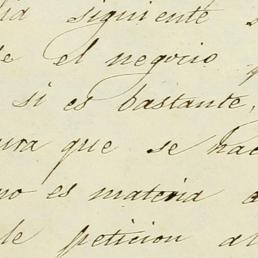 dia siguiente s
de el negocio y
si es bastante,
ura que se hac
no es materia a
de peticion al